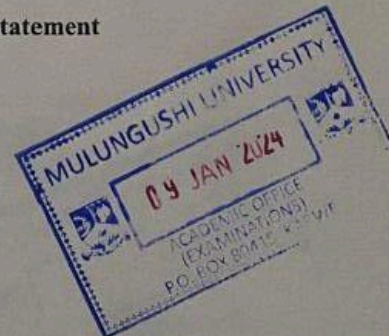 tatement
MULUNGUSHI UNIVERSITY
09 JAN 2024
ACADEMIC OFFICE
(EXAMINATIONS)
P.O. BOX